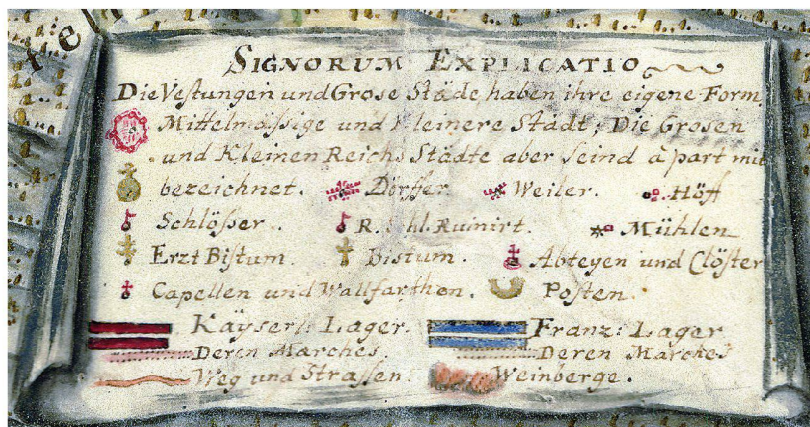 Signorum Explicatio
Die Vestungen und Grose Städe haben ihre eigene Form,
Mittelmässige und Kleinere Städt; Die Grosen
und Kleinen Reichs Städte aber seind à part mit
bezeichnet. Dörffer. Weiler. Höff
Schlösser. R. Schl. Ruinirt. Mühlen
Ertzt Bistum. Bistum. Abteyen und Clöster
Capellen und Wallfarthen. Posten.
Käyserl: Lager. Franz: Lager
Deren Marches. Deren Marches
Weg und Strassen. Weinberge.